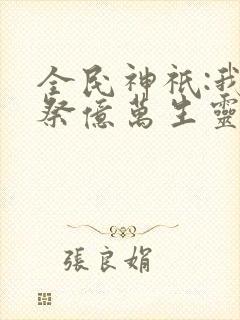 全民神祇:我
祭億萬生靈
張良娟